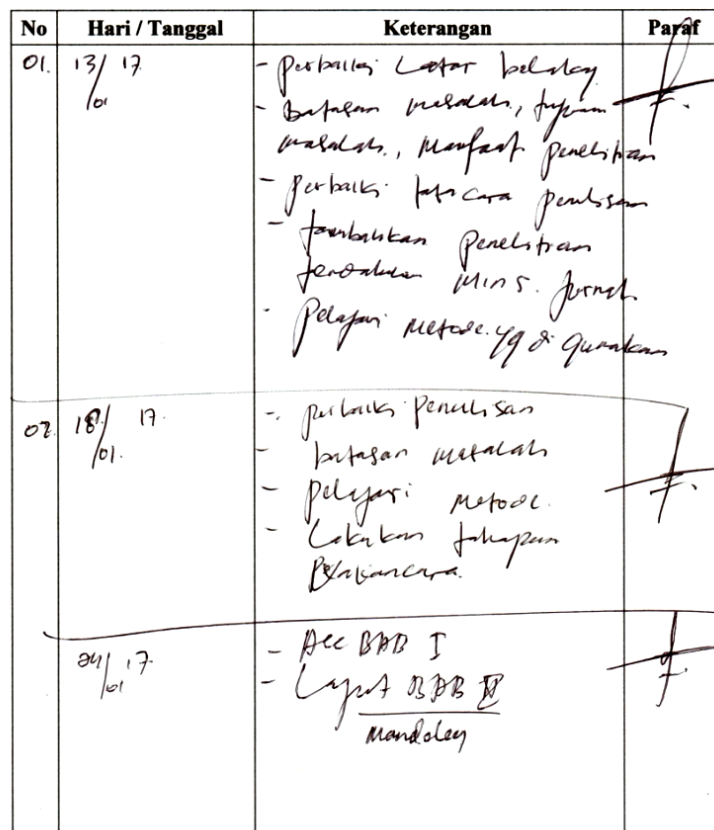 No Hari / Tanggal Keterangan Paraf
01. 13/01 17 - Perbaiki Latar belakang
- Batasan masalah, tujuan
masalah, Manfaat penelitian
- Perbaiki tata cara penulisan
- tambahkan Penelitian
terdahulu Min 5. Jurnal
- Pelajari Metode. yg di gunakan
02. 18/01. 17. - perbaiki Penulisan
- batasan masalah
- Pelajari Metode.
- Lakukan tahapan
24/01 17. - Acc BAB I
- Lanjut BAB